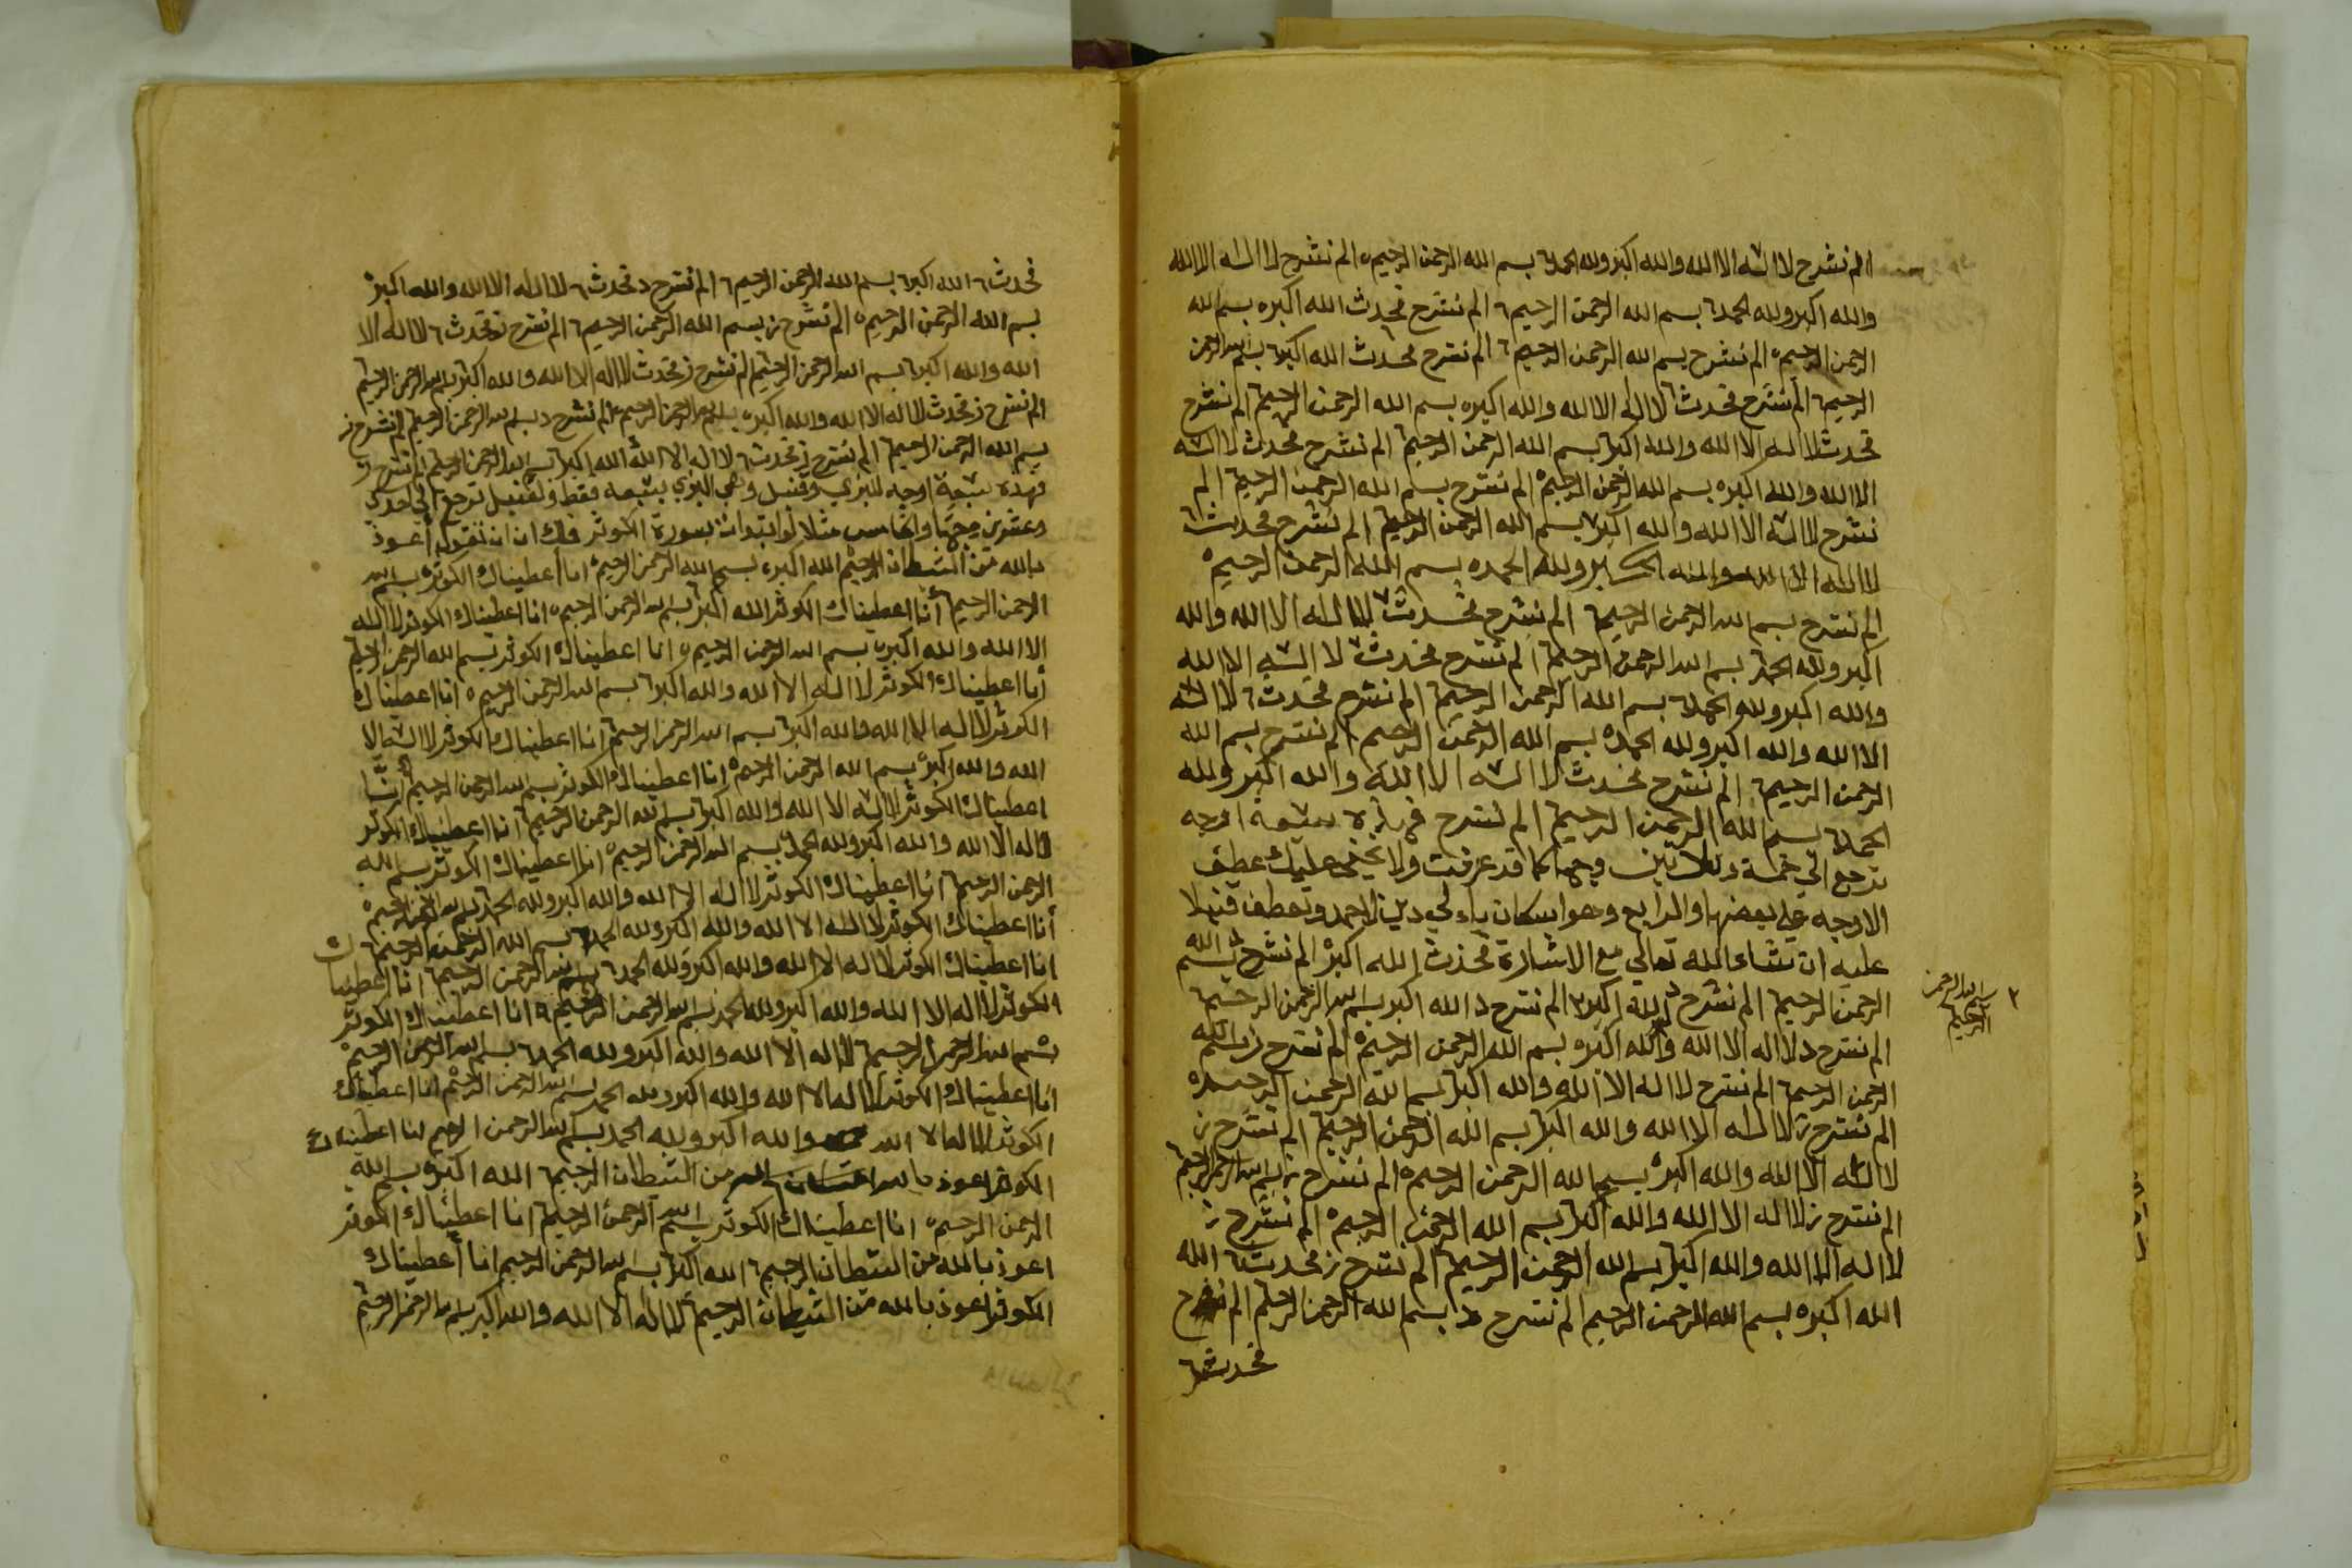 الم نشرح لا اله الا الله والله اكبر ولله الحمد بسم الله الرحمن الرحيم ه الم نشرح لا اله الا الله
والله اكبر ولله الحمد بسم الله الرحمن الرحيم الم نشرح فحدث الله اكبر ه بسم الله
الرحمن الرحيم ه الم نشرح بسم الله الرحمن الرحيم الم نشرح فحدث الله اكبر بسم الله الرحمن
الرحيم الم نشرح فحدث لا اله الا الله والله اكبر ه بسم الله الرحمن الرحيم الم نشرح
فحدث لا اله الا الله والله اكبر بسم الله الرحمن الرحيم الم نشرح فحدث لا اله
الا الله والله اكبر ه بسم الله الرحمن الرحيم ه الم نشرح بسم الله الرحمن الرحيم الم
نشرح لا اله الا الله والله اكبر بسم الله الرحمن الرحيم الم نشرح فحدث
لا اله الا الله والله اكبر ولله الحمد ه بسم الله الرحمن الرحيم ه
الم نشرح بسم الله الرحمن الرحيم الم نشرح فحدث لا اله الا الله والله
اكبر ولله الحمد بسم الله الرحمن الرحيم الم نشرح فحدث لا اله الا الله
والله اكبر ولله الحمد بسم الله الرحمن الرحيم الم نشرح فحدث لا اله
الا الله والله اكبر ولله الحمد ه بسم الله الرحمن الرحيم الم نشرح بسم الله
الرحمن الرحيم الم نشرح فحدث لا اله الا الله والله اكبر ولله
الحمد بسم الله الرحمن الرحيم الم نشرح فهذه سبعة اوجه
ترجع الى خمسة وثلاثين وجها كما قد عرفت ولا يخفى عليك عطف
الاوجه على بعضها والرابع وهو اسكان ياء لي دين لاحمد وتعطف قنبلا
عليه ان شاء الله تعالى مع الاشارة فحدث الله اكبر الم نشرح د بسم الله
الرحمن الرحيم الم نشرح د الله اكبر الم نشرح د الله اكبر بسم الله الرحمن الرحيم
٢ بسم الله الرحمن الرحيم
الم نشرح د لا اله الا الله والله اكبر ه بسم الله الرحمن الرحيم ه الم نشرح ز بسم الله
الرحمن الرحيم الم نشرح لا اله الا الله والله اكبر بسم الله الرحمن الرحيم ه
الم نشرح ز لا اله الا الله والله اكبر بسم الله الرحمن الرحيم الم نشرح ز
لا اله الا الله والله اكبر ه بسم الله الرحمن الرحيم ه الم نشرح ز بسم الله الرحمن الرحيم
الم نشرح ز لا اله الا الله والله اكبر بسم الله الرحمن الرحيم ه الم نشرح ز
لا اله الا الله والله اكبر بسم الله الرحمن الرحيم الم نشرح ز فحدث الله
الله اكبر ه بسم الله الرحمن الرحيم الم نشرح د بسم الله الرحمن الرحيم الم نشرح
فحدث
فحدث الله اكبر بسم الله الرحمن الرحيم الم نشرح د فحدث لا اله الا الله والله اكبر
بسم الله الرحمن الرحيم ه الم نشرح ز بسم الله الرحمن الرحيم الم نشرح ز فحدث لا اله الا
الله والله اكبر بسم الله الرحمن الرحيم الم نشرح ز فحدث لا اله الا الله والله اكبر بسم الله الرحمن الرحيم
الم نشرح ز فحدث لا اله الا الله والله اكبر ه بسم الله الرحمن الرحيم الم نشرح د بسم الله الرحمن الرحيم الم نشرح ز
بسم الله الرحمن الرحيم الم نشرح ز فحدث لا اله الا الله الله اكبر بسم الله الرحمن الرحيم الم نشرح ز
فهذه سبعة اوجه للبزي وقنبل وهي للبزي بسبعه فقط ولقنبل ترجع الى احدى
وعشرين وجها والخامس مثلا لو ابتدات بسورة الكوثر فلك ان تقول اعوذ
بالله من الشيطان الرجيم الله اكبر ه بسم الله الرحمن الرحيم ه انا اعطيناك الكوثر ه بسم الله
الرحمن الرحيم انا اعطيناك الكوثر الله اكبر بسم الله الرحمن الرحيم ه انا اعطيناك الكوثر لا اله
الا الله والله اكبر ه بسم الله الرحمن الرحيم ه انا اعطيناك الكوثر بسم الله الرحمن الرحيم
انا اعطيناك الكوثر لا اله الا الله والله اكبر بسم الله الرحمن الرحيم ه انا اعطيناك
الكوثر لا اله الا الله والله اكبر بسم الله الرحمن الرحيم انا اعطيناك الكوثر لا اله الا
الله والله اكبر ه بسم الله الرحمن الرحيم ه انا اعطيناك الكوثر بسم الله الرحمن الرحيم انا
اعطيناك الكوثر لا اله الا الله والله اكبر بسم الله الرحمن الرحيم انا اعطيناك الكوثر
لا اله الا الله والله اكبر ولله الحمد بسم الله الرحمن الرحيم ه انا اعطيناك الكوثر بسم الله
الرحمن الرحيم انا اعطيناك الكوثر لا اله الا الله والله اكبر ولله الحمد بسم الله الرحمن الرحيم ه
انا اعطيناك الكوثر لا اله الا الله والله اكبر ولله الحمد بسم الله الرحمن الرحيم
انا اعطيناك الكوثر لا اله الا الله والله اكبر ولله الحمد بسم الله الرحمن الرحيم انا اعطيناك
الكوثر لا اله الا الله والله اكبر ولله الحمد بسم الله الرحمن الرحيم ه انا اعطيناك الكوثر
بسم الله الرحمن الرحيم لا اله الا الله والله اكبر ولله الحمد بسم الله الرحمن الرحيم ه
انا اعطيناك الكوثر لا اله الا الله والله اكبر ولله الحمد بسم الله الرحمن الرحيم انا اعطيناك
الكوثر لا اله الا الله والله اكبر ولله الحمد بسم الله الرحمن الرحيم انا اعطيناك
الكوثر اعوذ بالله من الشيطان الرجيم الله اكبر ه بسم الله
الرحمن الرحيم ه انا اعطيناك الكوثر بسم الله الرحمن الرحيم انا اعطيناك الكوثر
اعوذ بالله من الشيطان الرجيم الله اكبر بسم الله الرحمن الرحيم انا اعطيناك
الكوثر اعوذ بالله من الشيطان الرجيم لا اله الا الله والله اكبر بسم الله الرحمن الرحيم